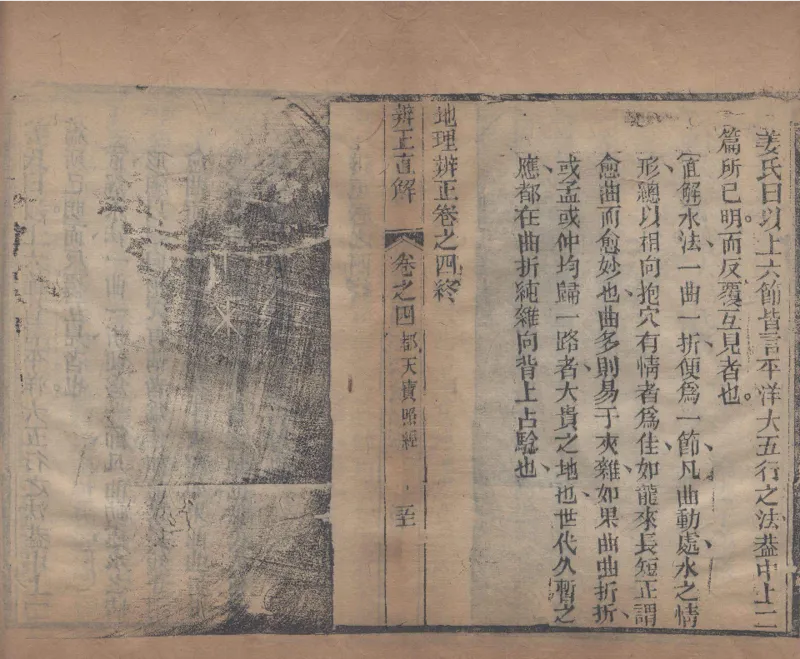 姜氏曰以上六節皆言平洋大五行之法葢中上二
篇所已明而反覆互見者也
直解水法一曲一折便爲一節凡曲動處水之情
形總以相向抱穴有情者爲佳如龍來長短正謂
愈曲而愈妙也曲多則易于夾雜如果曲曲折折
或孟或仲均歸一路者大貴之地也世代久暫之
應都在曲折純雜向背上占騐也
地理辨正卷之四終
辨正直解 卷之四 都天寶照經